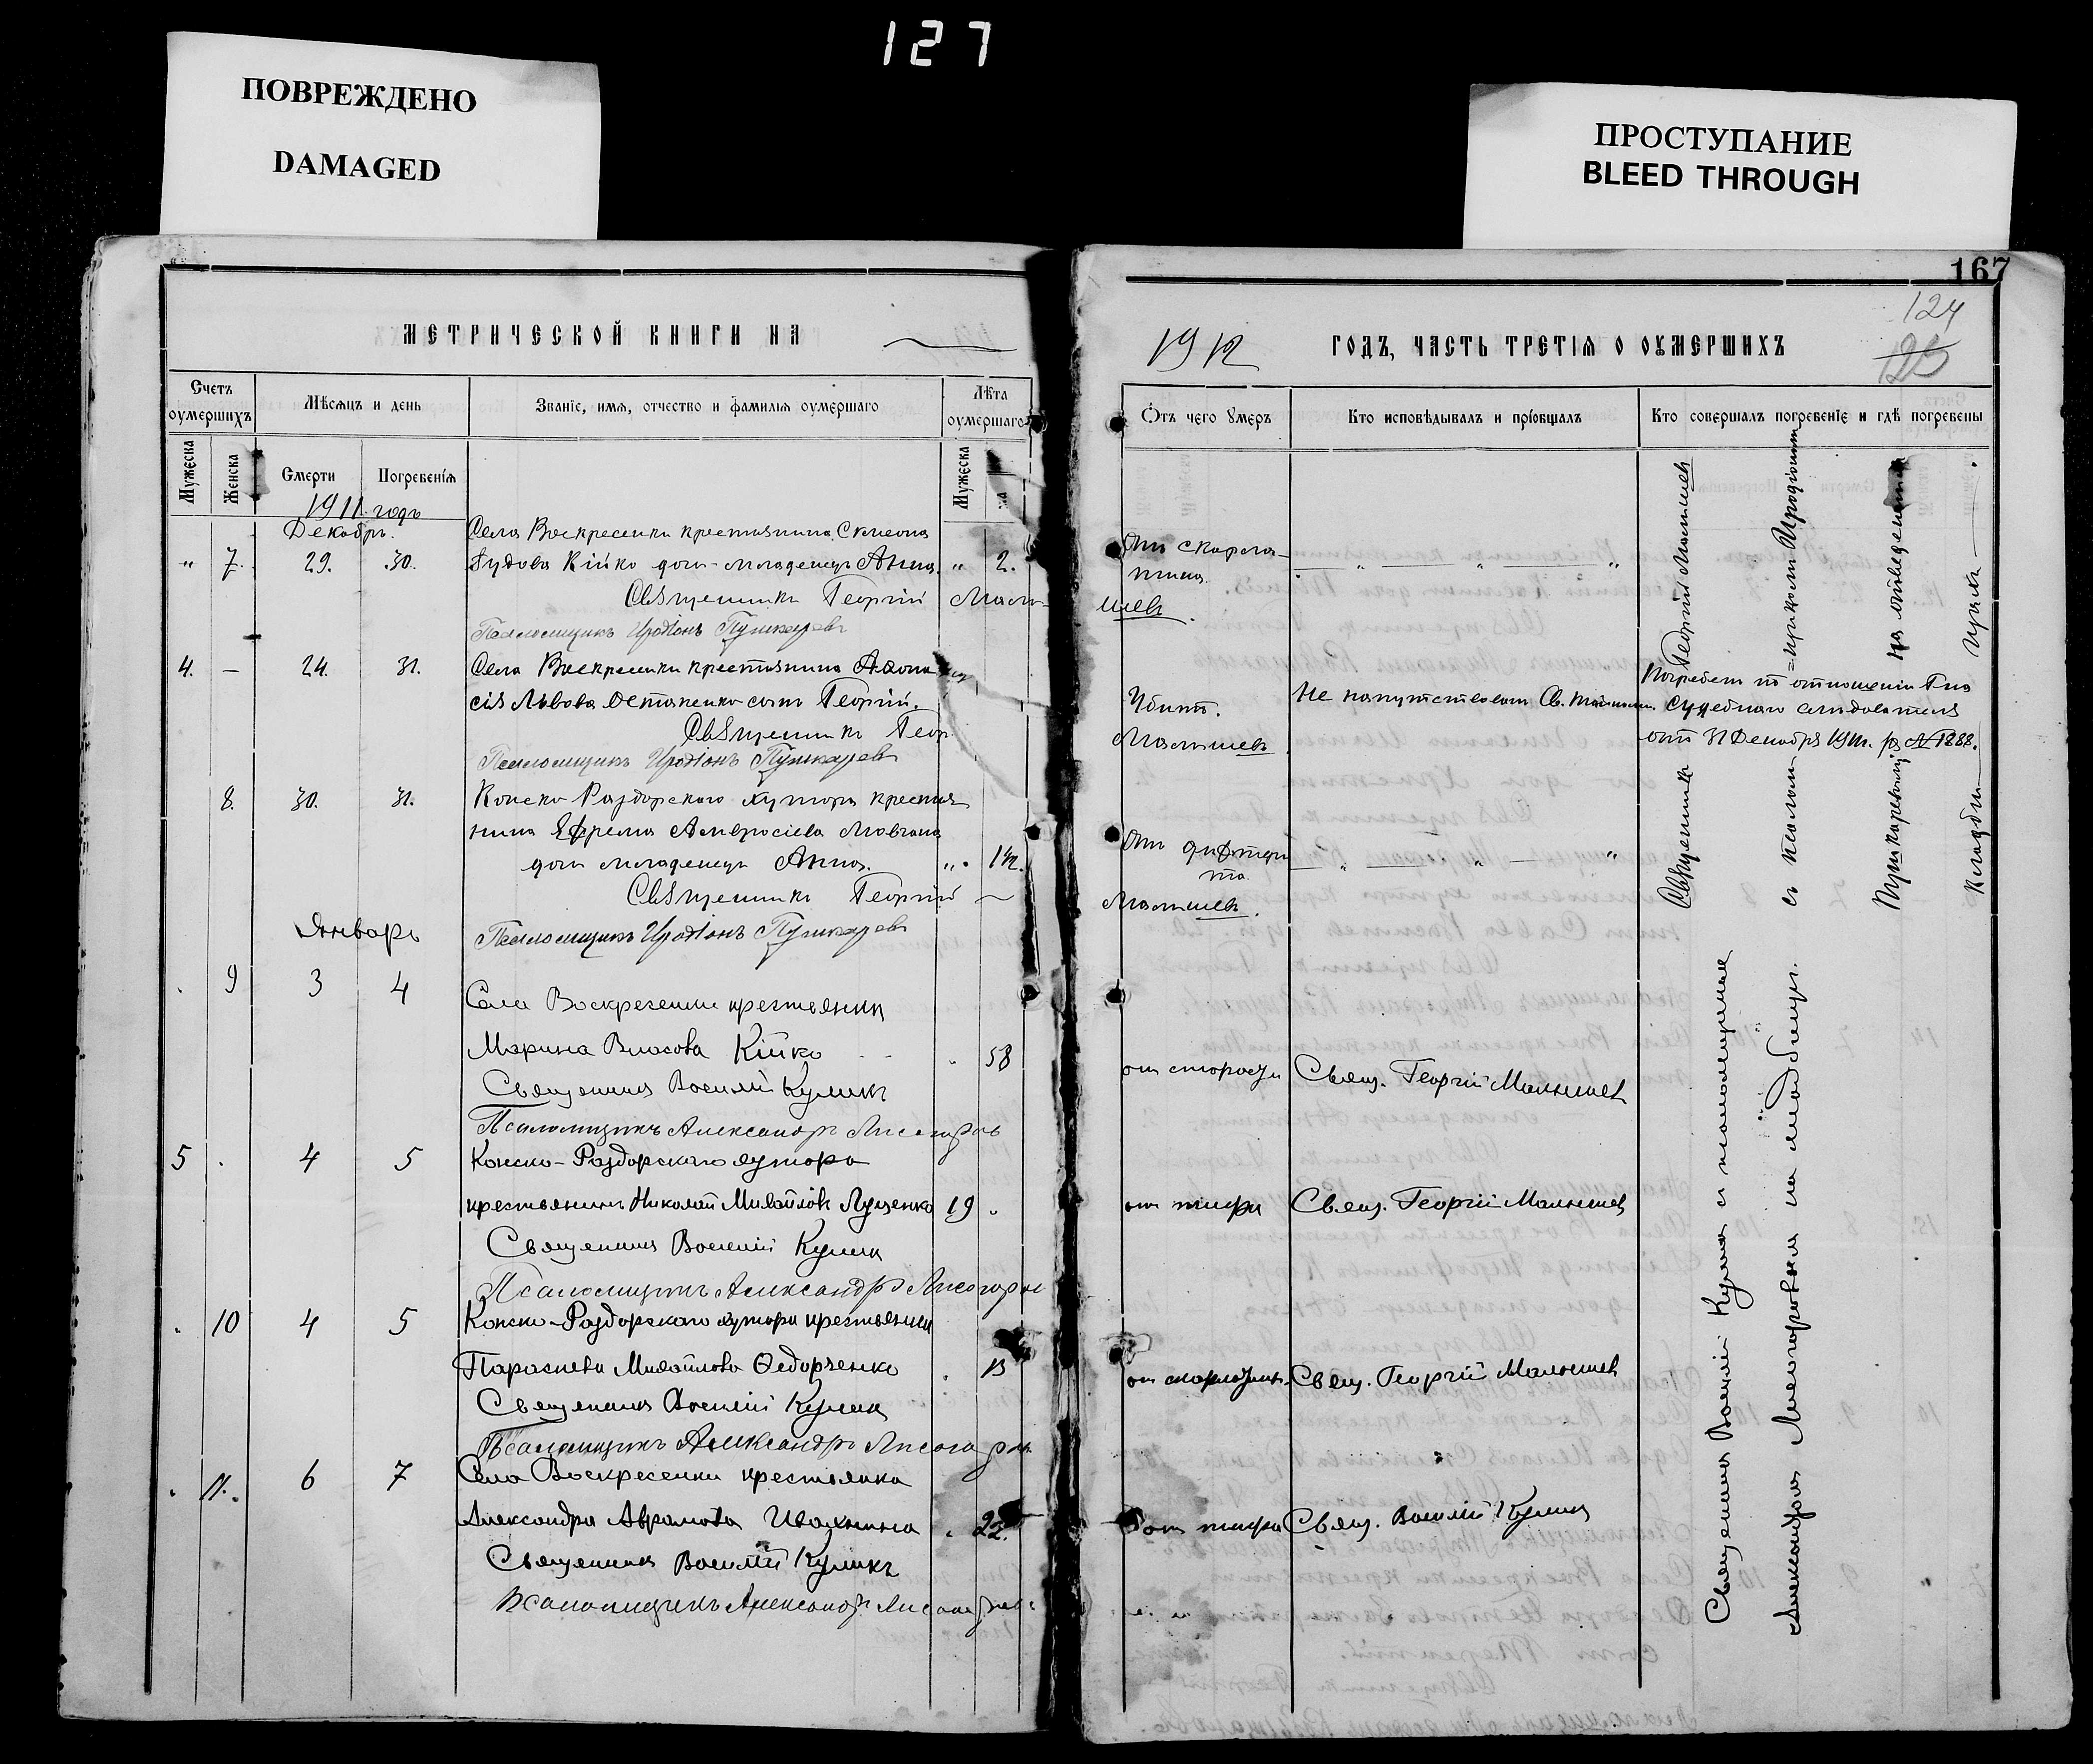 127
ПОВРЕЖДЕНО
DAMAGED
ПРОСТУПАНИЕ
BLEED THROUGH
167
124
МЕТРИЧЕСКОЙ КНИГИ НА
1912 ГОДЪ, ЧАСТЬ ТРЕТІЯ О ОУМЕРШИХЪ
Счетъ оумершихъ
Мѣсяцъ и день
Званіе, имя, отчество и фамилія оумершаго
Лѣта оумершаго
Отъ чего умеръ
Кто исповѣдывалъ и пріобщалъ
Кто совершалъ погребеніе и гдѣ погребены
Мужеска
Женска
Смерти
Погребенія
Мужеска
1911 годъ
Декабрь.
Села Воскресенки крестьянина Симеона
" 7. 29. 30. Кійко дочь-младенецъ Анна. " 2. Отъ скарла-
тины.
Священникъ Георгій Малы-
шевъ.
Псаломщикъ Иродіонъ Пушкаревъ
4. — 24. 31. Села Воскресенки крестьянина Афана
сія Львова Остапенко сынъ Георгій. Убитъ. Не напутствованъ Св. Погребенъ по отношенію
Судебнаго слѣдователя
отъ 31 Декабря 1911. за № 1888.
Священникъ Геор.
Малышевъ.
Псаломщикъ Иродіонъ Пушкаревъ
8. 30. 31. Конско-Раздорскаго хутора крестья
нина Ефрема Амвросіева Мовчана
дочь младенецъ Анна. " Отъ дифтери
та.
Священникъ Георгій
Малышевъ.
Январь
Псаломщикъ Иродіонъ Пушкаревъ
9 3 4 Села Воскресенки крестьянка
Марина Власова Кійко 58 отъ старости Свящ. Георгій Малышевъ
Священникъ Василій Куликъ
Псаломщикъ Александръ
5 4 5 Конско-Раздорскаго хутора
крестьянинъ Николай Михайловъ Луценко 19 отъ тифа Свящ. Георгій Малышевъ
Священникъ Василій Куликъ
Псаломщикъ Александръ
10 4 5 Конско-Раздорскаго хутора крестьянка
Параскева Михайлова Ѳедорченко 13 отъ скарлатины Свящ. Георгій Малышевъ
Священникъ Василій Куликъ
Псаломщикъ Александръ
11. 6 7 Села Воскресенки крестьянка
Александра Аврамова 22. отъ тифа Свящ. Василій Куликъ
Священникъ Василій Куликъ
Псаломщикъ Александръ
Священникъ Георгій Малышевъ
съ псалом=щикомъ Иродіономъ
Пушкаревымъ на отведенномъ
кладби— щѣ.
Священникъ Василій Куликъ съ псаломщикомъ
Александромъ на кладбищѣ.